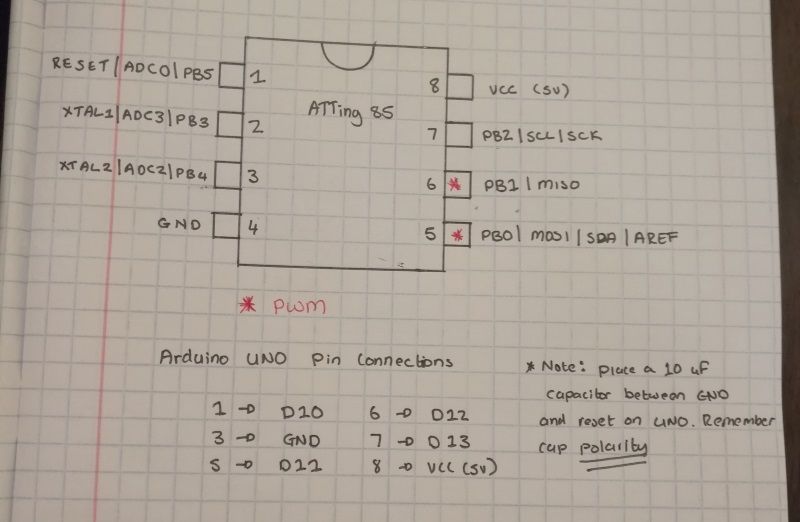 RESET|ADC0|PB5 1
8 VCC (5V)
ATTiny 85
XTAL1|ADC3|PB3 2
7 PB2|SCL|SCK
XTAL2|ADC2|PB4 3
6 * PB1|MISO
GND 4
5 * PB0|MOSI|SDA|AREF
* PWM
Arduino UNO Pin Connections
1 → D10 6 → D12
3 → GND 7 → D13
5 → D11 8 → VCC (5V)
* Note: Place a 10 uF
capacitor between GND
and reset on UNO. Remember
cap polarity